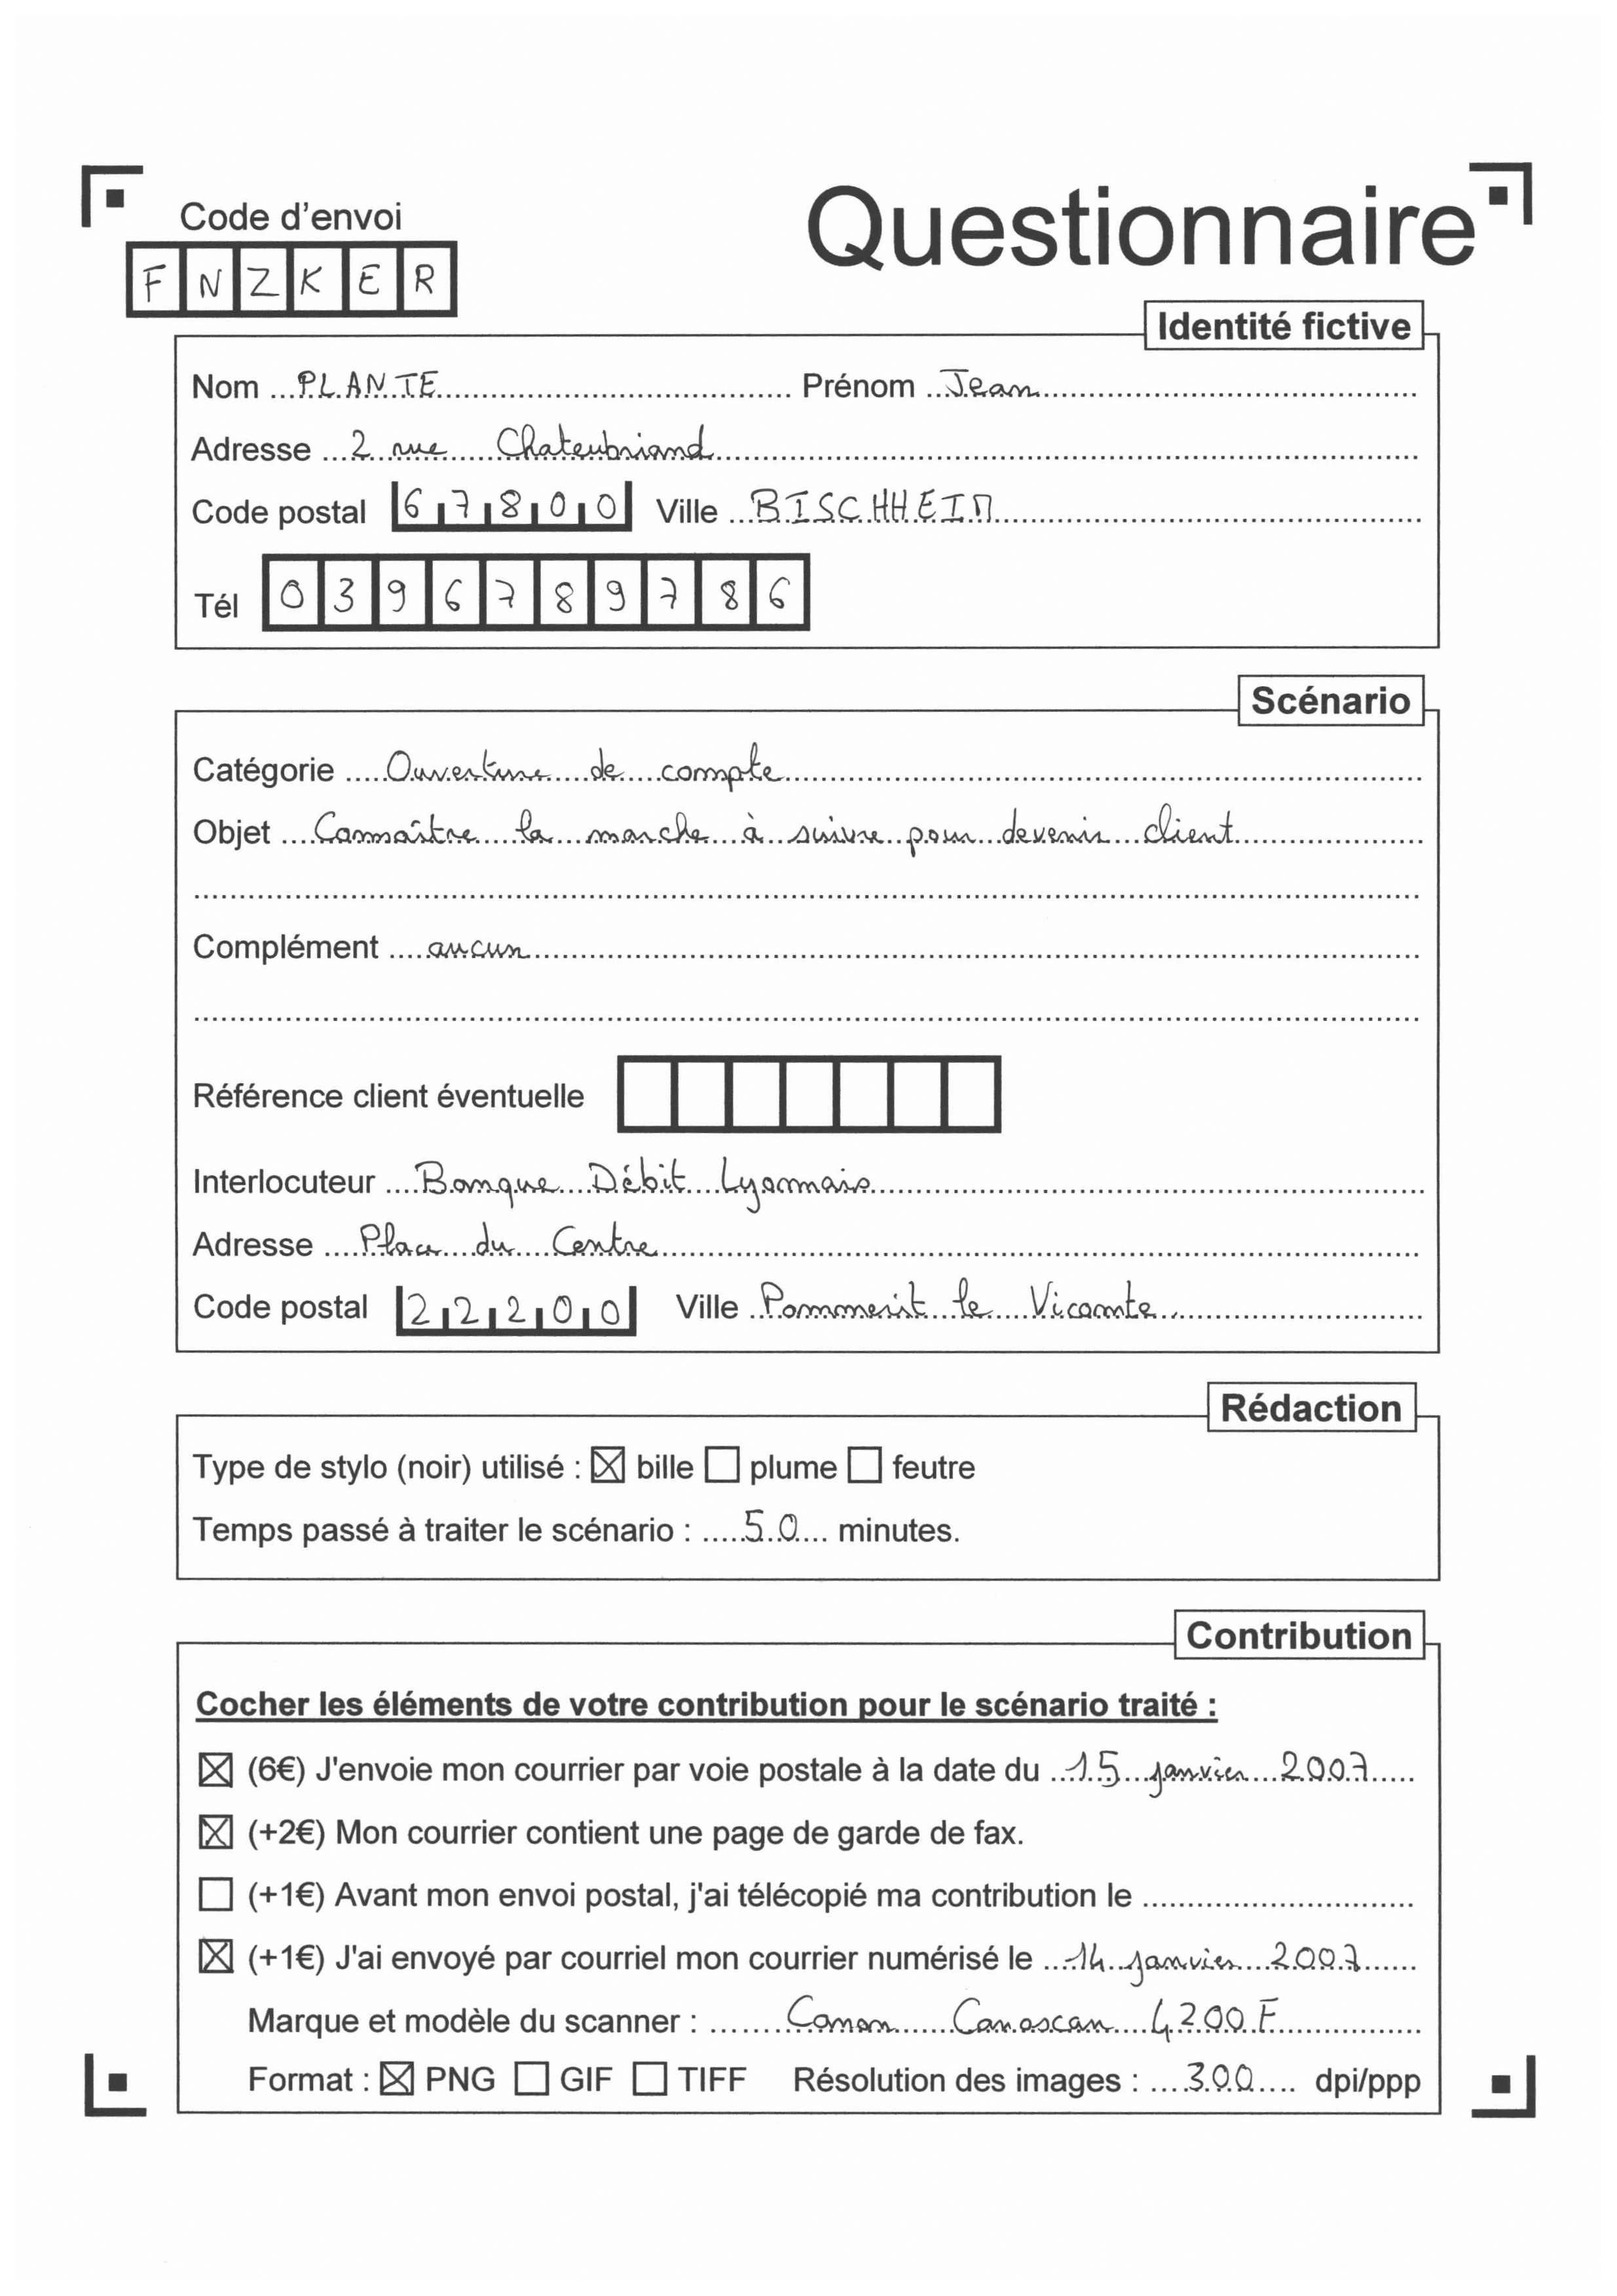 Code d'envoi
Questionnaire
FNZKER
Identité fictive
Nom PLANTE Prénom Jean
Adresse 2 rue Chateubriand
Code postal 67800 Ville BISCHHEIM
Tél 0396789786
Scénario
Catégorie Ouverture de compte
Objet Connaître la marche à suivre pour devenir client
Complément aucun
Référence client éventuelle
Interlocuteur Banque Débit Lyonnais
Adresse Place du Centre
Code postal 22200 Ville Pommerit le Vicomte
Rédaction
Type de stylo (noir) utilisé : ☒ bille ☐ plume ☐ feutre
Temps passé à traiter le scénario : 50 minutes.
Contribution
Cocher les éléments de votre contribution pour le scénario traité :
☒ (6€) J'envoie mon courrier par voie postale à la date du 15 janvier 2007
☒ (+2€) Mon courrier contient une page de garde de fax.
☐ (+1€) Avant mon envoi postal, j'ai télécopié ma contribution le
☒ (+1€) J'ai envoyé par courriel mon courrier numérisé le 14 janvier 2007
Marque et modèle du scanner : Canon Canoscan 4200F
Format : ☒ PNG ☐ GIF ☐ TIFF Résolution des images : 300 dpi/ppp